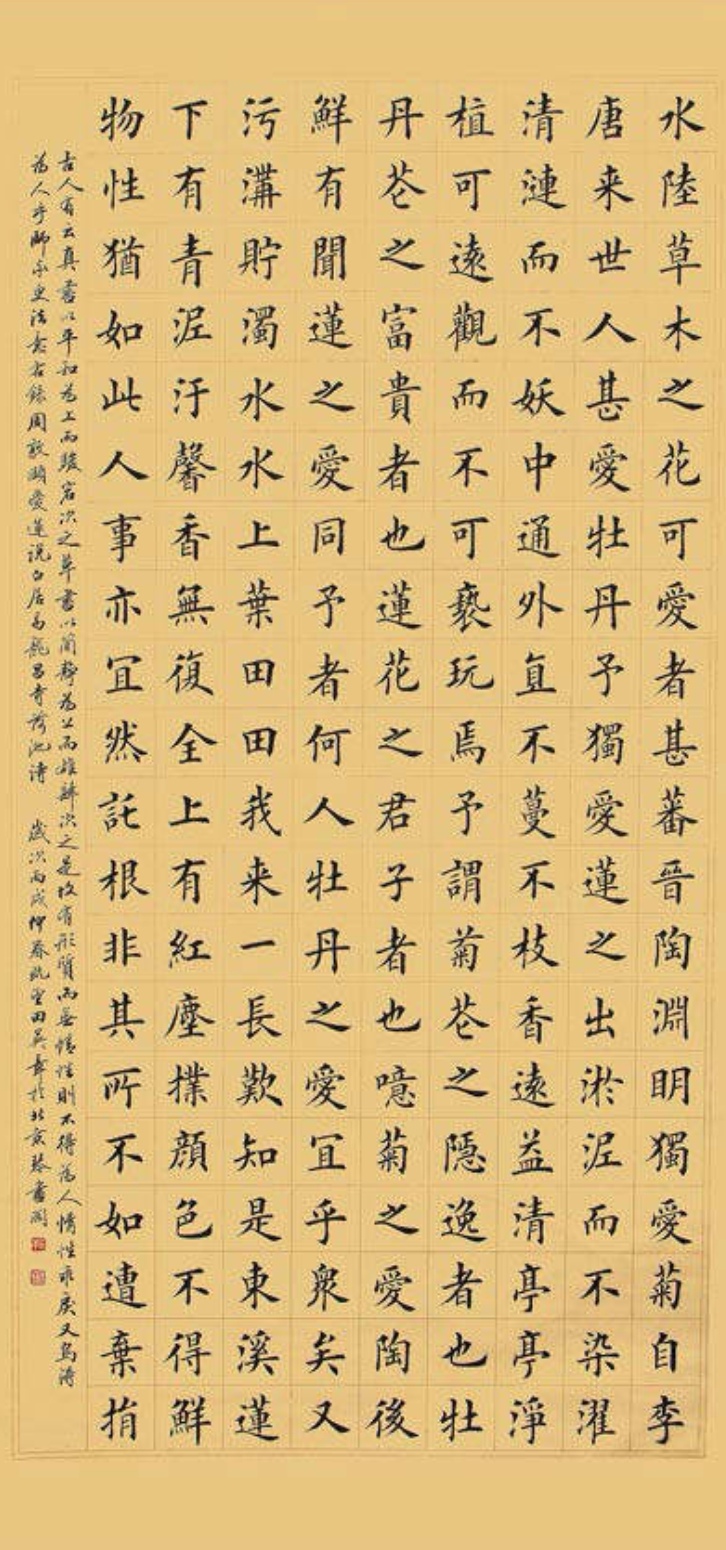 水陸草木之花可愛者甚蕃晉陶淵明獨愛菊自李
唐来世人甚愛牡丹予獨愛蓮之出淤泥而不染濯
清漣而不妖中通外直不蔓不枝香遠益清亭亭淨
植可遠觀而不可褻玩焉予謂菊芲之隱逸者也牡
丹芲之富貴者也蓮花之君子者也噫菊之愛陶後
鮮有聞蓮之愛同予者何人牡丹之愛宜乎衆矣又
污溝貯濁水水上葉田田我来一長歎知是東溪蓮
下有青泥汙馨香無復全上有紅塵撲顔色不得鮮
物性猶如此人事亦宜然託根非其所不如遭棄捐
古人有云真書以平和為上而駿宕次之草書以簡靜為上而雄辭次之是故有形質而無情性則不得為人情性乖戾又烏淂
為人乎右錄周敦頤愛蓮说白居易龍昌寺荷池詩 歲次丙戌仲春田英章於北京